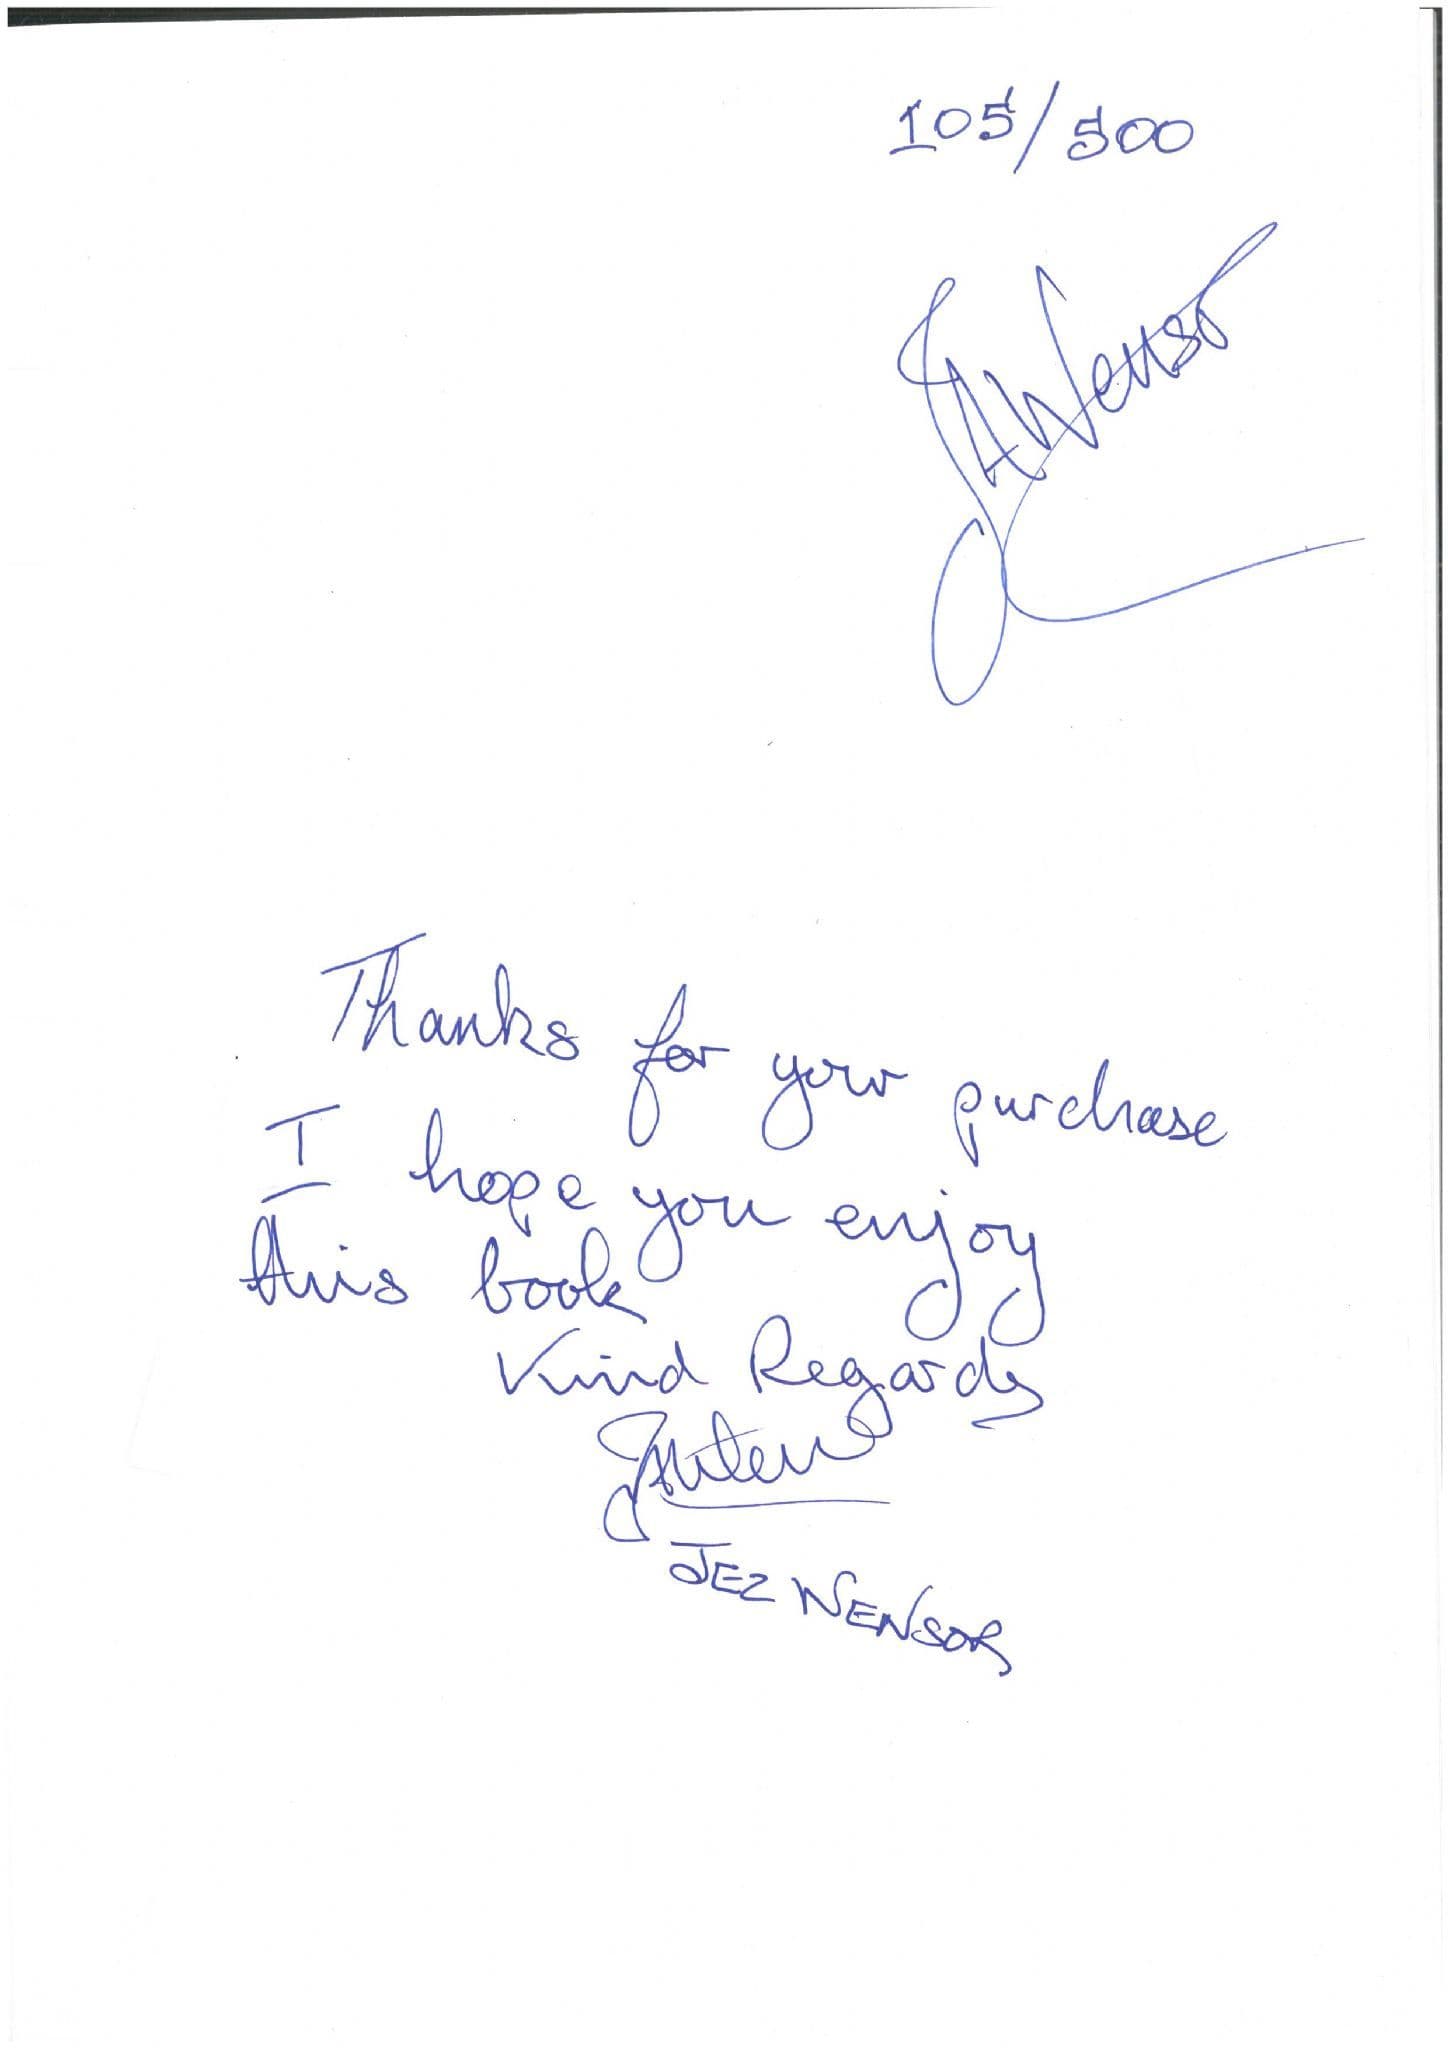 105/500
Thanks for your purchase
I hope you enjoy
this book
Kind Regards
JEZ WENSOR